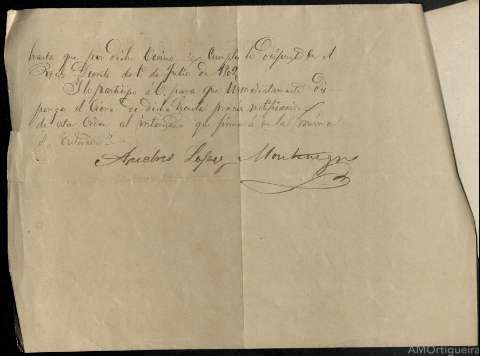 hasta que por dicho vecino se cumpla lo dispuesto en el
de Julio de
Y lo participo a V. para que inmediatamente dis-
ponga el cierre de dicha Escuela previa notificacion
de esta orden al interesado que firmará en la misma
el
Andres Lopez Montenegro
AMOrtigueira